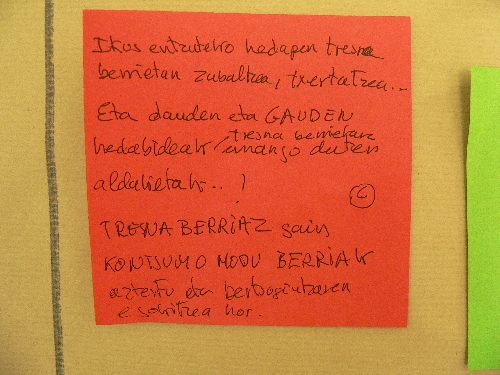 Ikus entzuteko hedapen tresna
berrietan zabaltzea, txertatzea...
Eta dauden eta GAUDEN
tresna berrietara
hedabideak / emango duten
aldaketak... !
6
TRESNA BERRIAZ gain
KONTSUMO MODU BERRIAK
aztertu eta berbagintzaren
eskutzea hor.